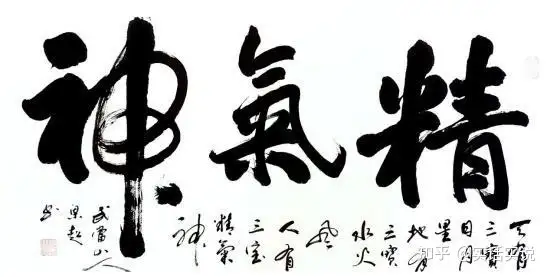 精氣神
天有
三寶
日月
星
地有
三寶
水火
風
人有
三宝
精氣
神
武當山人
书
知乎